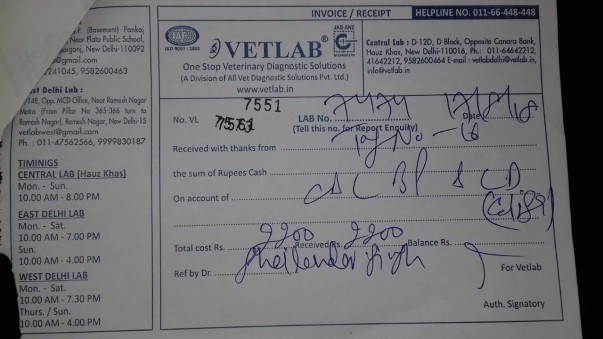 F. (Basement) Pankaj
Near Plato Public School,
arganj, New Delhi-110092
@gmail.com
2241045, 9582600463
st Delhi Lab :
148, Opp. MCD Office, Near Ramesh Nagar
Metro (From Pillar No 365-366 turn to
Ramesh Nagar), Ramesh Nagar, New Delhi-15
vetlabwest@gmail.com
Ph. : 011-47562566, 9999830187
TIMINGS
CENTRAL LAB (Hauz Khas)
Mon. - Sun.
10.00 AM - 8.00 PM
EAST DELHI LAB
Mon. - Sat.
10.00 AM - 7.00 PM
Sun.
10.00 AM - 4.00 PM
WEST DELHI LAB
Mon. - Sat.
10.00 AM - 7.30 PM
Thurs. / Sun.
10.00 AM - 4.00 PM
INVOICE / RECEIPT
HELPLINE NO. 011-66-448-448
IAF
ISO 9001 : 2008
VETLAB
JAS-ANZ
One Stop Veterinary Diagnostic Solutions
(A Division of All Vet Diagnostic Solutions Pvt. Ltd.)
www.vetlab.in
Central Lab : D-12D, D Block, Opposite Canara Bank,
Hauz Khas, New Delhi-110016, Ph.: 011-64642221,
41642212, 9582600464 E-mail : vetlabdelhi@vetlab.in,
info@vetlab.in
7551
No. VL
LAB No. 7474 Date
(Tell this no. for Report Enquiry)
Received with thanks from Tag No - 16
the sum of Rupees Cash
On account of
Total cost Rs. 2200 Received Rs. 2200 Balance Rs.
Ref by Dr. Shailender Singh
For Vetlab
Auth. Signatory